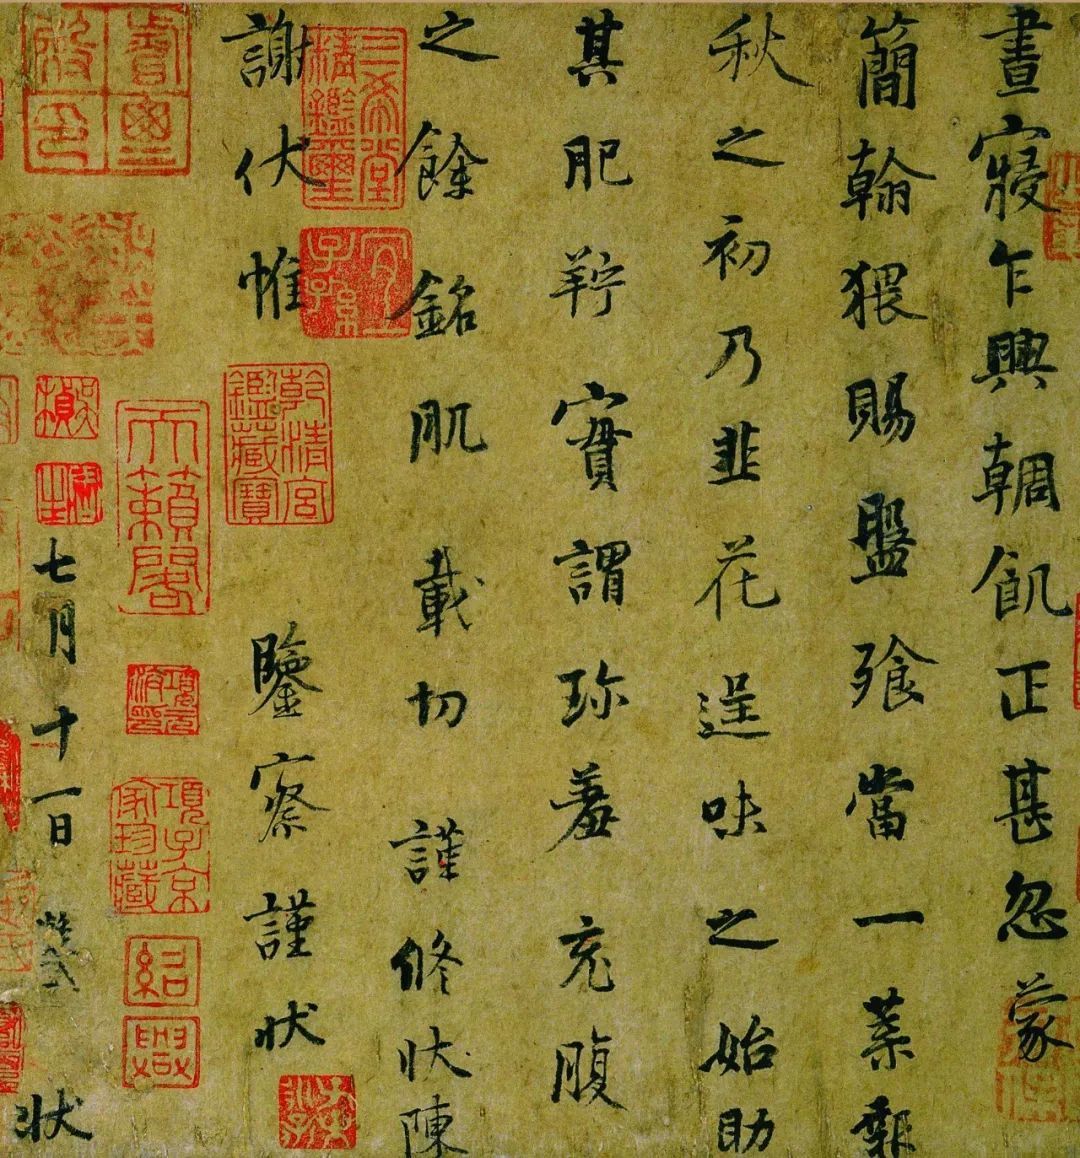 晝寢乍興輖飢正甚忽蒙
簡翰猥賜盤飧當一葉報
秋之初乃韭花逞味之始助
其肥羜實謂珍羞充腹
之餘銘肌載切謹修狀陳
謝伏惟
鑒察謹狀
七月十一日
狀
三希堂精鑑璽
宜子孫
乾清宮鑑藏寶
天籟閣
項子京家珍藏
紹興